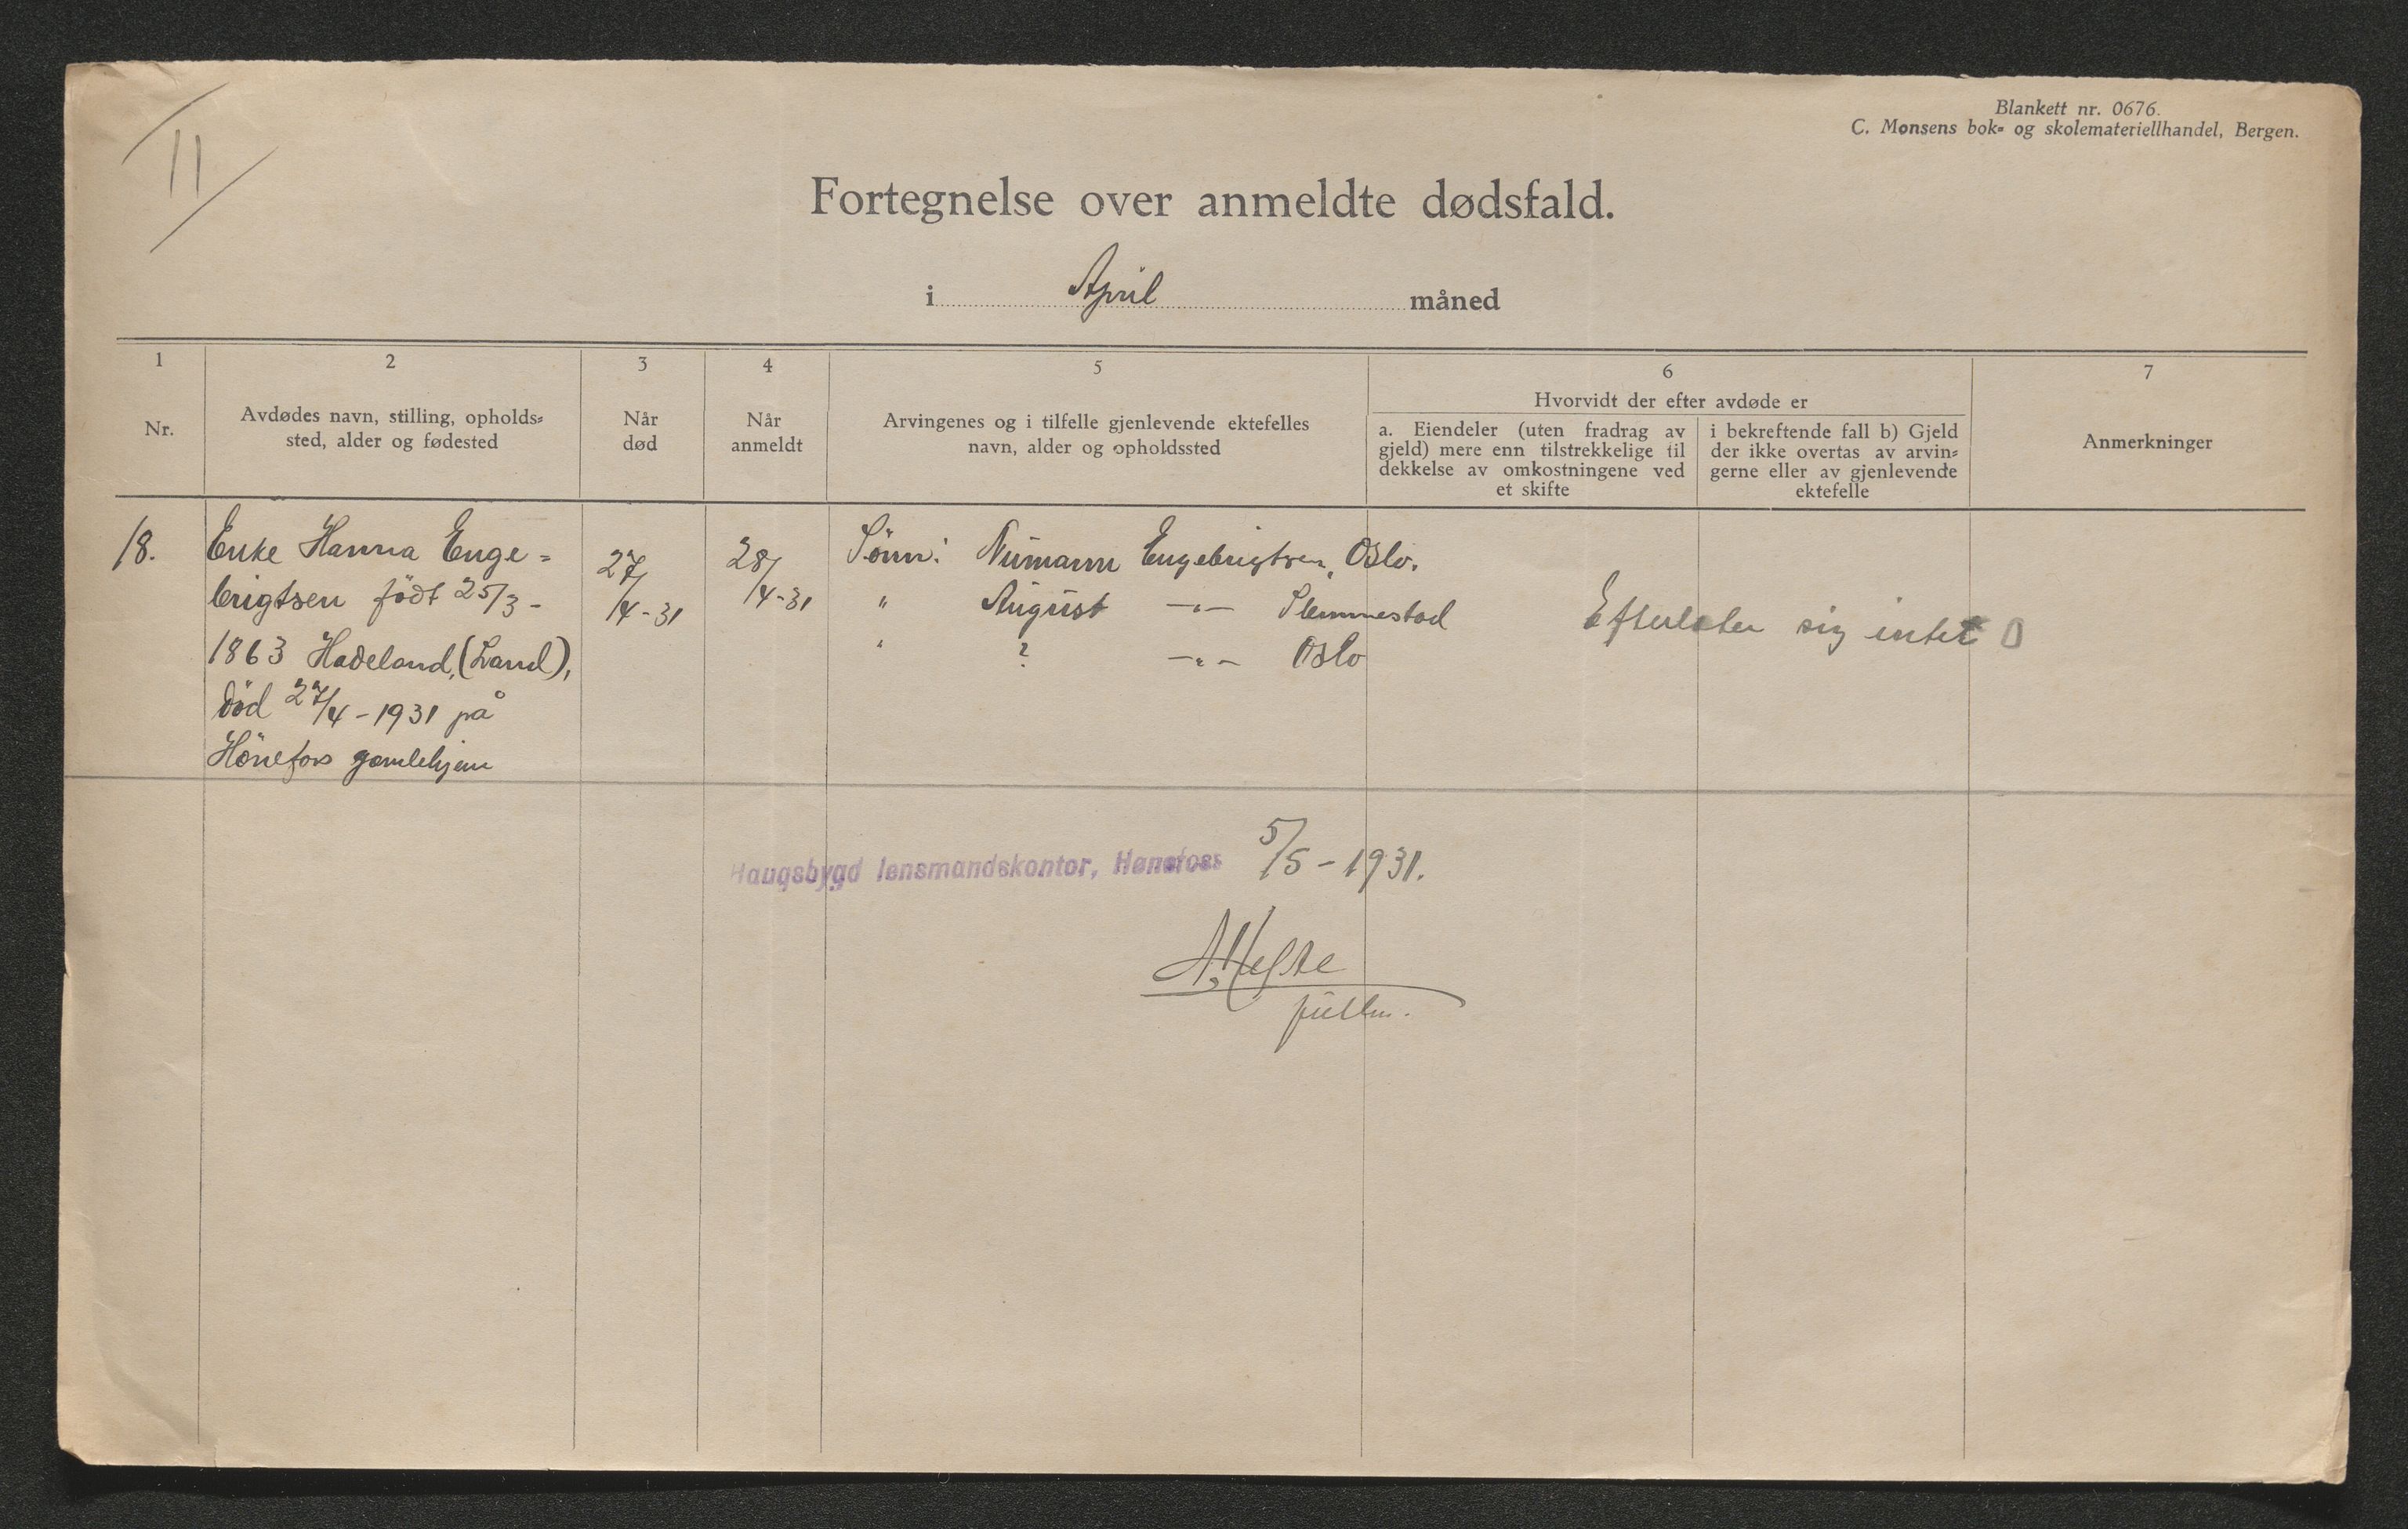 11
Blankett nr. 0676.
C. Monsens bok- og skolemateriellhandel, Bergen.
Fortegnelse over anmeldte dødsfald.
i April måned
1 2 3 4 5 6 7
Nr.
Avdødes navn, stilling, opholds-
sted, alder og fødested
Når
død
Når
anmeldt
Arvingenes og i tilfelle gjenlevende ektefelles
navn, alder og opholdssted
Hvorvidt der efter avdøde er
a. Eiendeler (uten fradrag av
gjeld) mere enn tilstrekkelige til
dekkelse av omkostningene ved
et skifte
i bekreftende fall b) Gjeld
der ikke overtas av arvin-
gerne eller av gjenlevende
ektefelle
Anmerkninger
18.
Enke Hanna Enge-
brigtsen født 25/3-
1863 Hadeland, (Land),
død 27/4-1931 på
Hönefoss gamlehjem
27/4-31
28/4-31
Sönn: Numann Engebrigtsen, Oslo.
" August -"- Slemmestad
" ? -"- Oslo
Efterlater sig intet 0
Haugsbygd lensmandskontor, Hønefoss 5/5-1931.